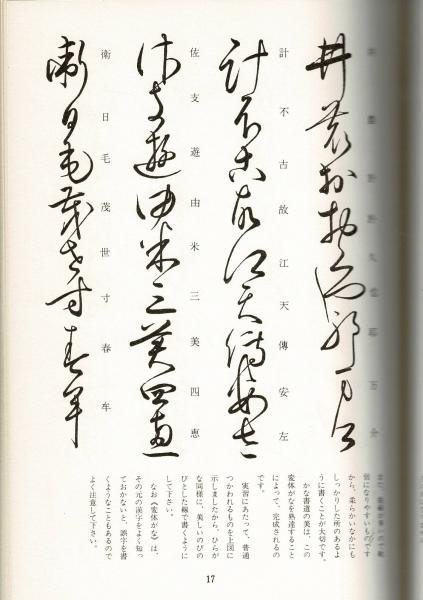 於久也耶万
計不古故江天傳安左
佐支遊由米三美四恵
衛日毛茂世寸春牟
また、
弱になりやすいものです
から、柔らかいなかにも
しっかりした所のあるよ
うに書くことが大切です。
かな書道の美は、この
変体がなを熟達すること
によって、完成されるの
です。
実習にあたって、普通
つかわれるものを上図に
示しましたから、ひらが
な同様に、美しいのびの
びとした線で書くように
して下さい。
なお《変体がな》は、
その元の漢字をよく知っ
ておかないと、誤字を書
くようなこともあるので
よく注意して下さい。
17